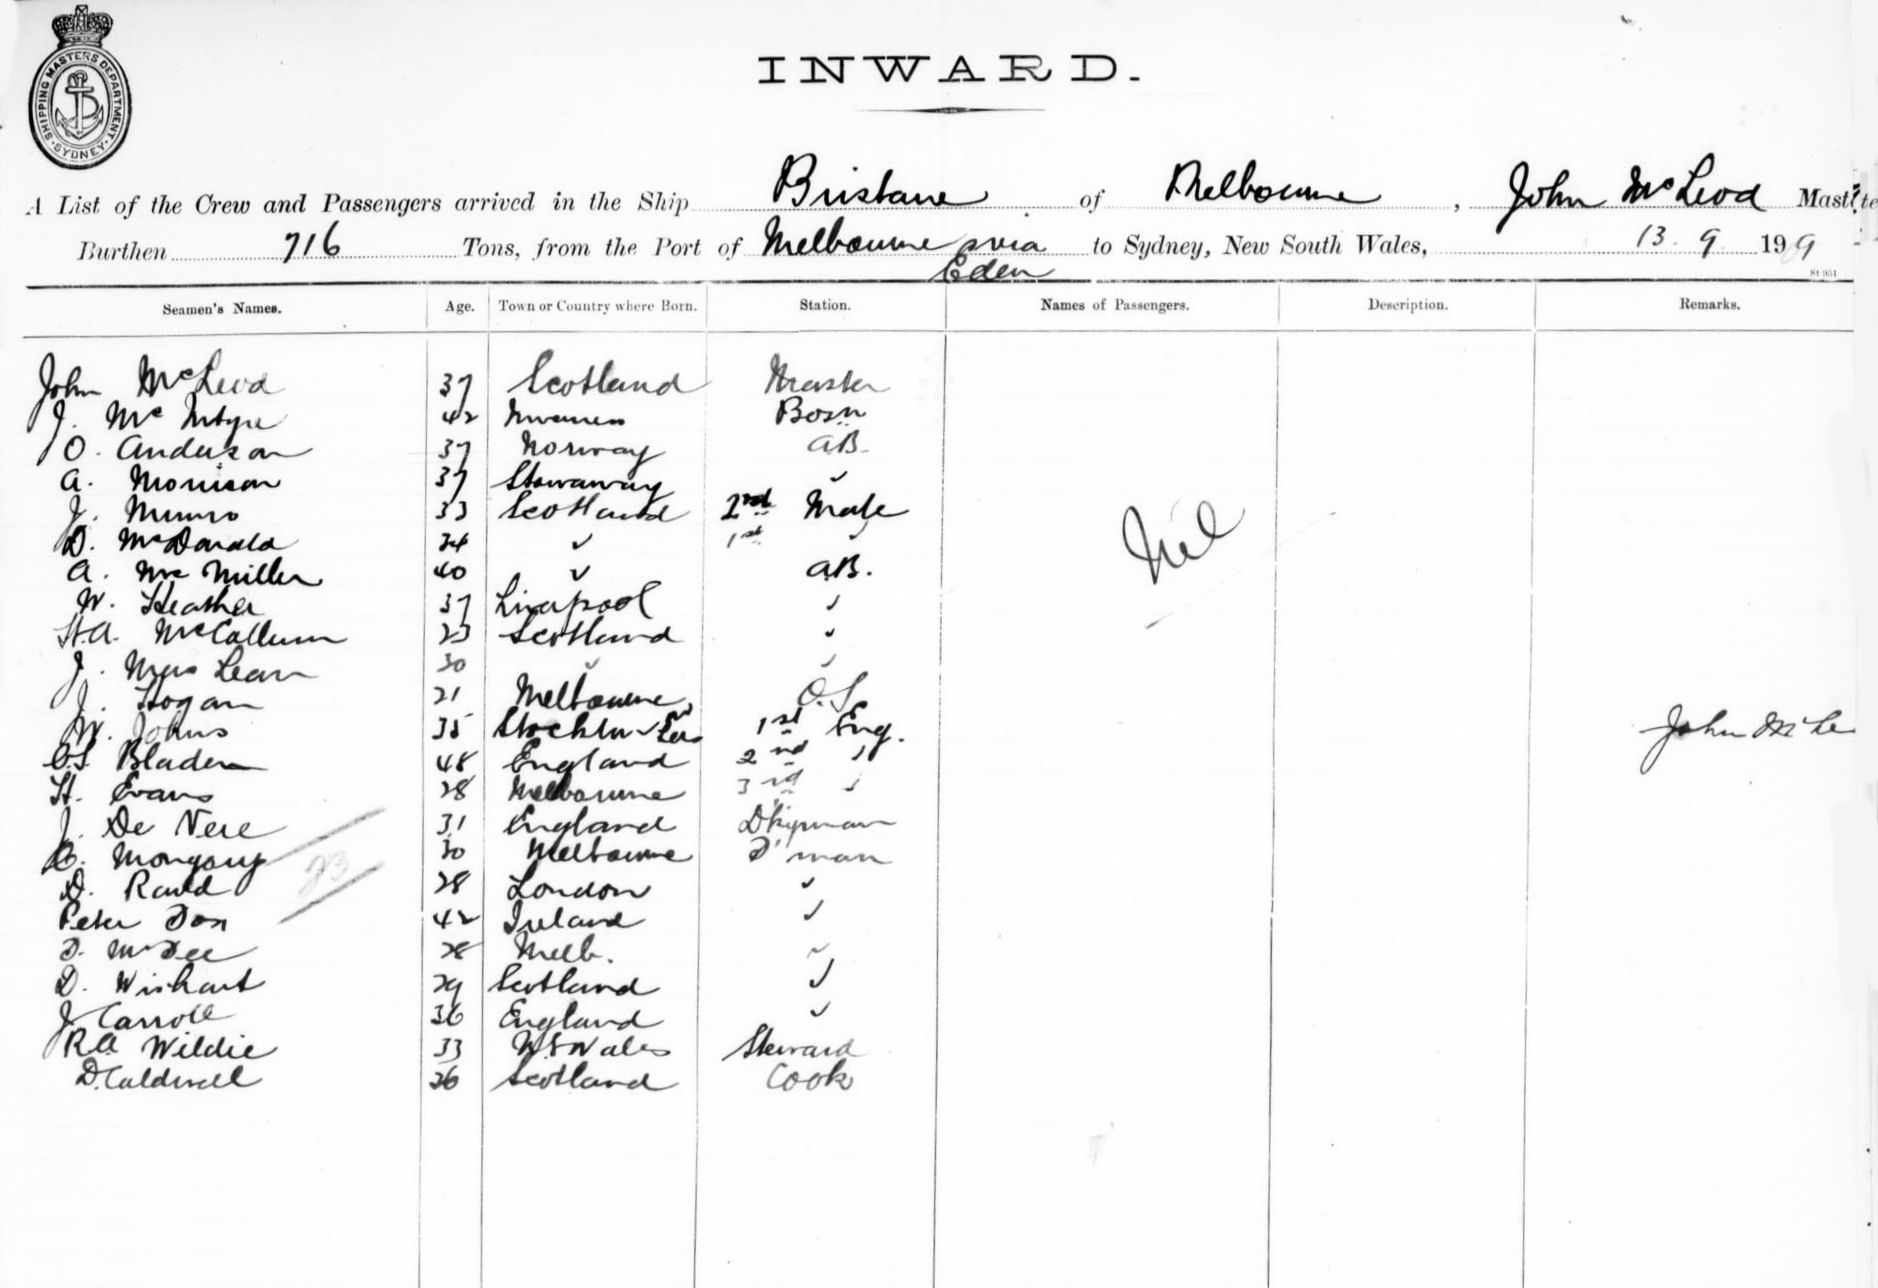 SHIPPING MASTERS DEPARTMENT. SYDNEY.
INWARD.
A List of the Crew and Passengers arrived in the Ship Brisbane of Melbourne, John McLeod Master
Burthen 716 Tons, from the Port of Melbourne via to Sydney, New South Wales, 13. 9 199
Eden
Seamen's Names. Age. Town or Country where Born. Station. Names of Passengers. Description. Remarks.
John McLeod 37 Scotland Master
J. McIntyre 42 Inverness Bosn
O. Anderson 37 Norway AB.
A. Morrison 37 Stornaway ✓
J. Munro 33 Scotland 2nd Mate
D. McDonald 34 ✓ 1st ✓
Nil
A. Mc Millen 40 ✓ AB.
W. Heather 37 Liverpool ✓
H.A. McCallum 23 Scotland ✓
J. Mac Lean 30 ✓ ✓
J. Hogan 21 Melbourne O.S.
W. Johns 35 Stockton 1st Eng. John McLe
Bladen 48 England 2nd ✓
H. Evans 28 Melbourne 3rd ✓
J. De Vere 31 England Dkyman
Mongouy 30 Melbourne F'man
23
D. Rauld 28 London ✓
Peter Fox 42 Ireland ✓
F. McFee 28 Melb. ✓
D. Wishart 29 Scotland ✓
J. Carroll 36 England ✓
RA Wildie 33 N S Wales Steward
D. Caldwell 26 Scotland Cook